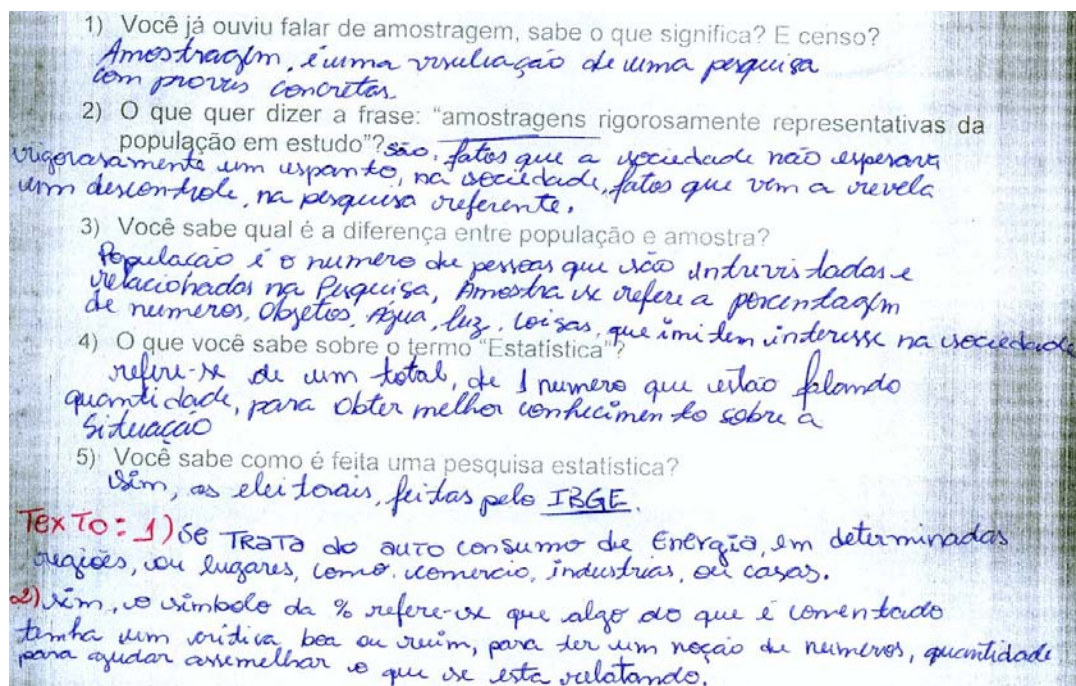 1) Você já ouviu falar de amostragem, sabe o que significa? E censo?
Amostragem, é uma visuliação de uma pesquisa
com provas concretas.
2) O que quer dizer a frase: “amostragens rigorosamente representativas da
população em estudo”? são, fatos que a sociedade não esperava
rigorasamente um espanto, na sociedade, fatos que vem a revela
um descontrole, na pesquisa referente.
3) Você sabe qual é a diferença entre população e amostra?
População é o numero de pessoas que são intrevistadas e
relacionados na Pesquisa, Amostra se refere a porcentagem
de numeros, objetos, Água, luz, coisas, que imitem interesse na sociedade
4) O que você sabe sobre o termo “Estatística”?
refere-se de um total, de 1 numero que estão falando
quantidade, para obter melhor conhecimento sobre a
Situação
5) Você sabe como é feita uma pesquisa estatística?
Sim, as eleitorais, feitas pelo IBGE.
TEXTO: 1) Se TRATA do auto consumo de Energia, em determinadas
regiões, ou lugares, como comercio, industrias, ou casas.
2) sim, o simbolo da % refere-se que algo do que é comentado
tenha um critica boa ou ruim, para ter um noção de numeros, quantidade
para ajudar assemelhar o que se esta relatando.